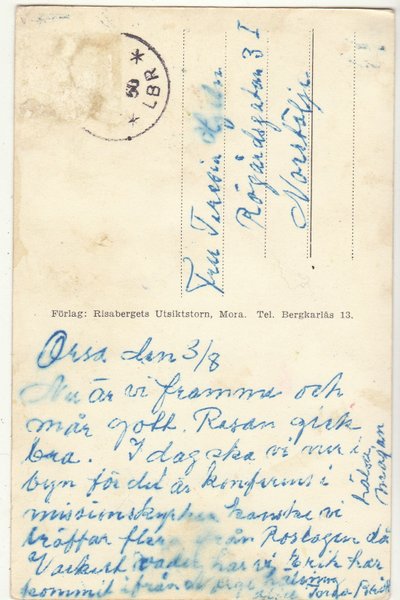 50
* LBR *
Fru Teresia
Rögårdsgatan 3 I
Norrtälje
Förlag: Risabergets Utsiktstorn, Mora. Tel. Bergkarlås 13.
Orsa den 3/8
Nu är vi framme och
mår gott. Resan gick
bra. I dag ska vi ner i
byn för det är konferens i
missionskyrkan kanske vi
träffar flera från Roslagen där
Vackert väder har vi Erik har
kommit ifrån